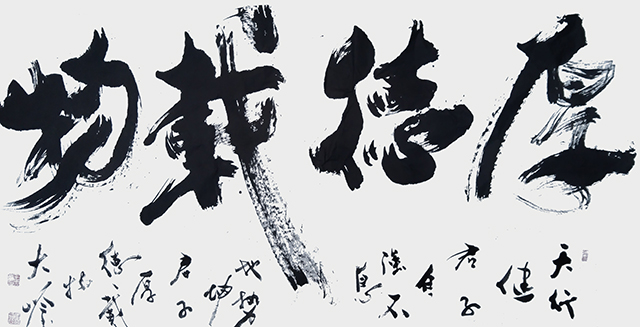 厚德載物
天行
健
君子
自
强不
息
地势
坤
君子
厚
德載
物
大吟